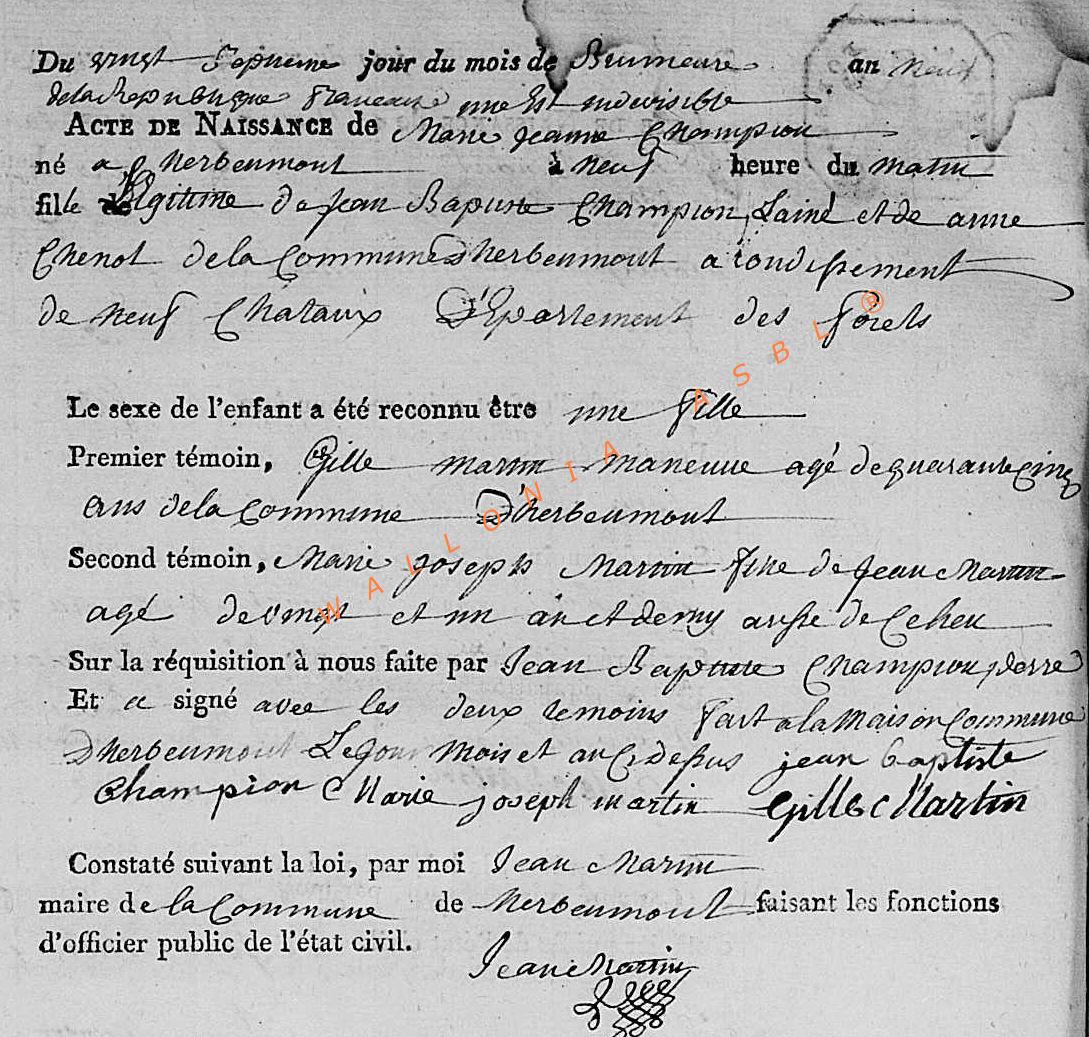 Du vingt Septieme jour du mois de Brumaire an Neuf
de la Republique francaise une Est indivisible
ACTE DE NAISSANCE de Marie Jeanne Champion
né a herbeumont à neuf heure du matin
fille Legitime de Jean Baptiste Champion, Lainé et de anne
Chenot de la Commune D'herbeumont arondissement
de neuf Chataux D'Epartement des forets
Le sexe de l'enfant a été reconnu être une fille
Premier témoin, Gille martin agé de quarante cinq
ans de la Commune D'herbeumont
Second témoin, Marie joseph Martin fille de Jean Martin
agé de vingt et un an et demy de
Sur la réquisition à nous faite par Jean Baptiste Champion, perre
Et a signé avec les deux temoins fait a la Maison Commune
D'herbeumont Le jour mois et an Cy depus jean baptiste
champion Marie joseph martin Gille Martin
Constaté suivant la loi, par moi Jean Martin
maire de la Commune de herbeumont faisant les fonctions
d'officier public de l'état civil.
Jean Martin
WALLONIA ASBL ®